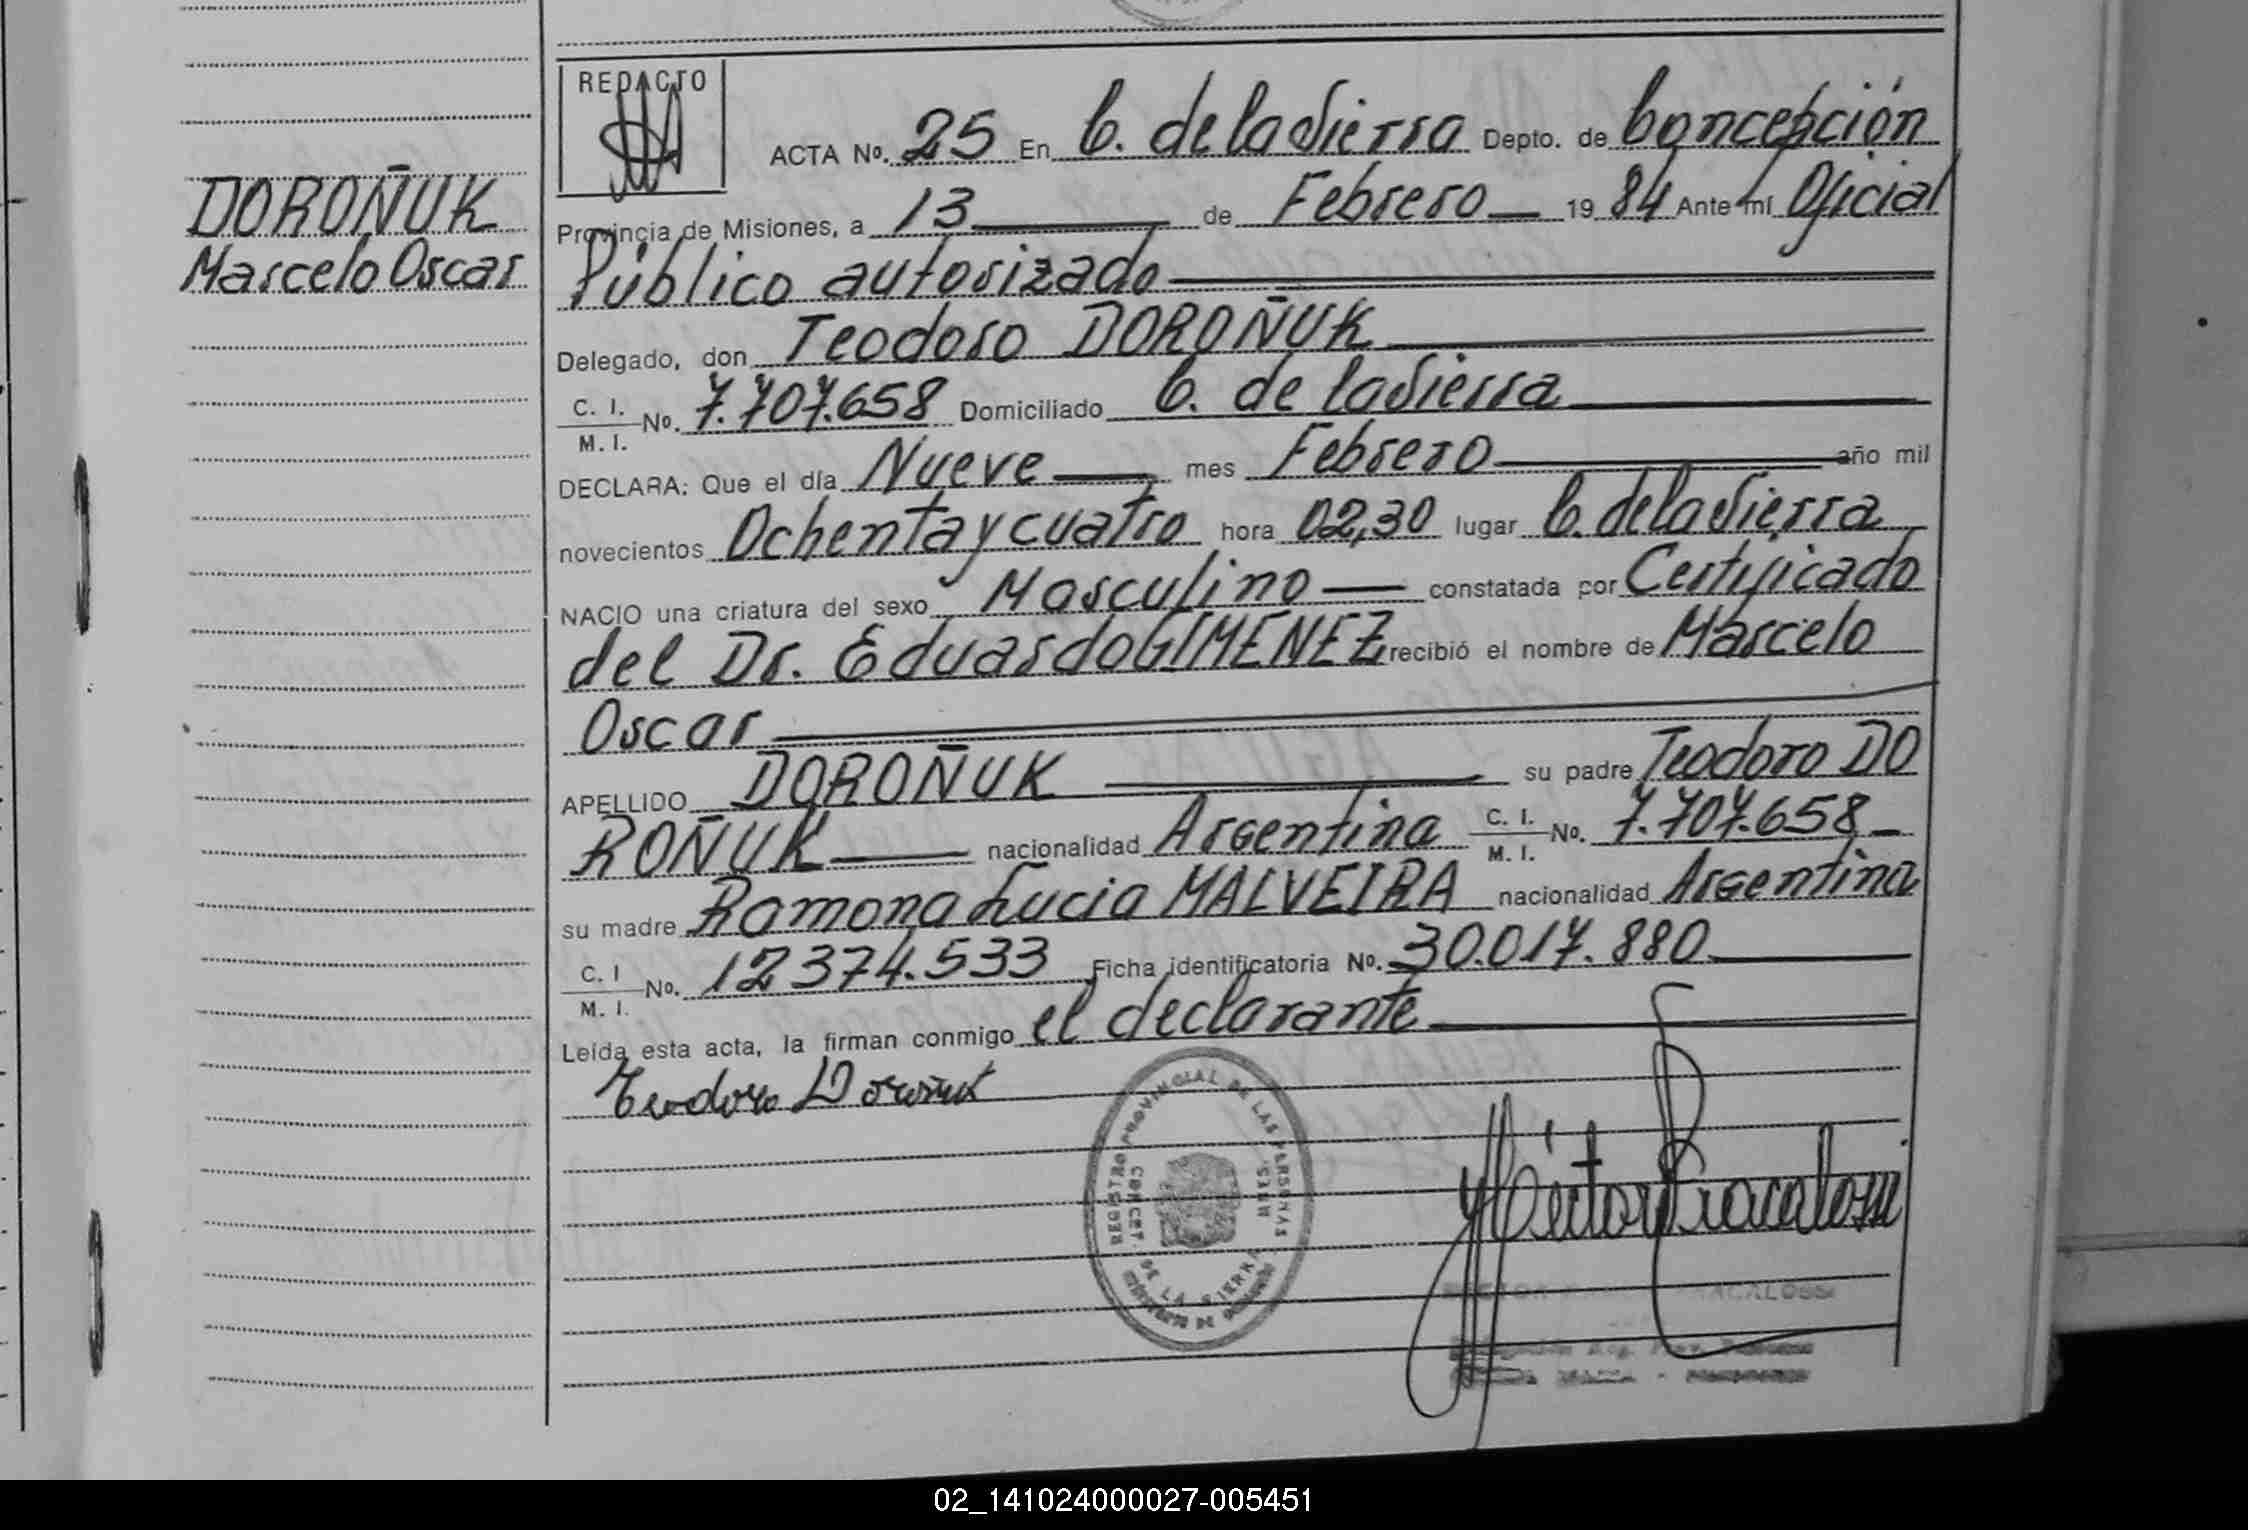 DOROÑUK
Marcelo Oscar
REDACTO
ACTA No. 25 En C. de la Sierra Depto. de Concepción
Provincia de Misiones, a 13 de Febrero 19 84 Ante mí Oficial
Público autorizado
Delegado, don Teodoro DOROÑUK
C. I.
M. I. No. 7.707.658 Domiciliado C. de la Sierra
DECLARA: Que el día Nueve mes Febrero año mil
novecientos Ochenta y cuatro hora 02,30 lugar C. de la Sierra
NACIO una criatura del sexo Masculino constatada por Certificado
del Dr. Eduardo GIMENEZ recibió el nombre de Marcelo
Oscar
APELLIDO DOROÑUK su padre Teodoro DO
ROÑUK nacionalidad Argentina C. I. M. I. No. 7.707.658
su madre Ramona Lucia MALVEIRA nacionalidad Argentina
C. I M. I. No. 12374.533 Ficha identificatoria No. 30.017.880
Leída esta acta, la firman conmigo el declarante
Teodoro Doroñuk
REGISTRO PROVINCIAL DE LAS PERSONAS
CONCEP. DE LA SIERRA MNES.
Héctor Fracalossi
FRACALOSSI
02_141024000027-005451